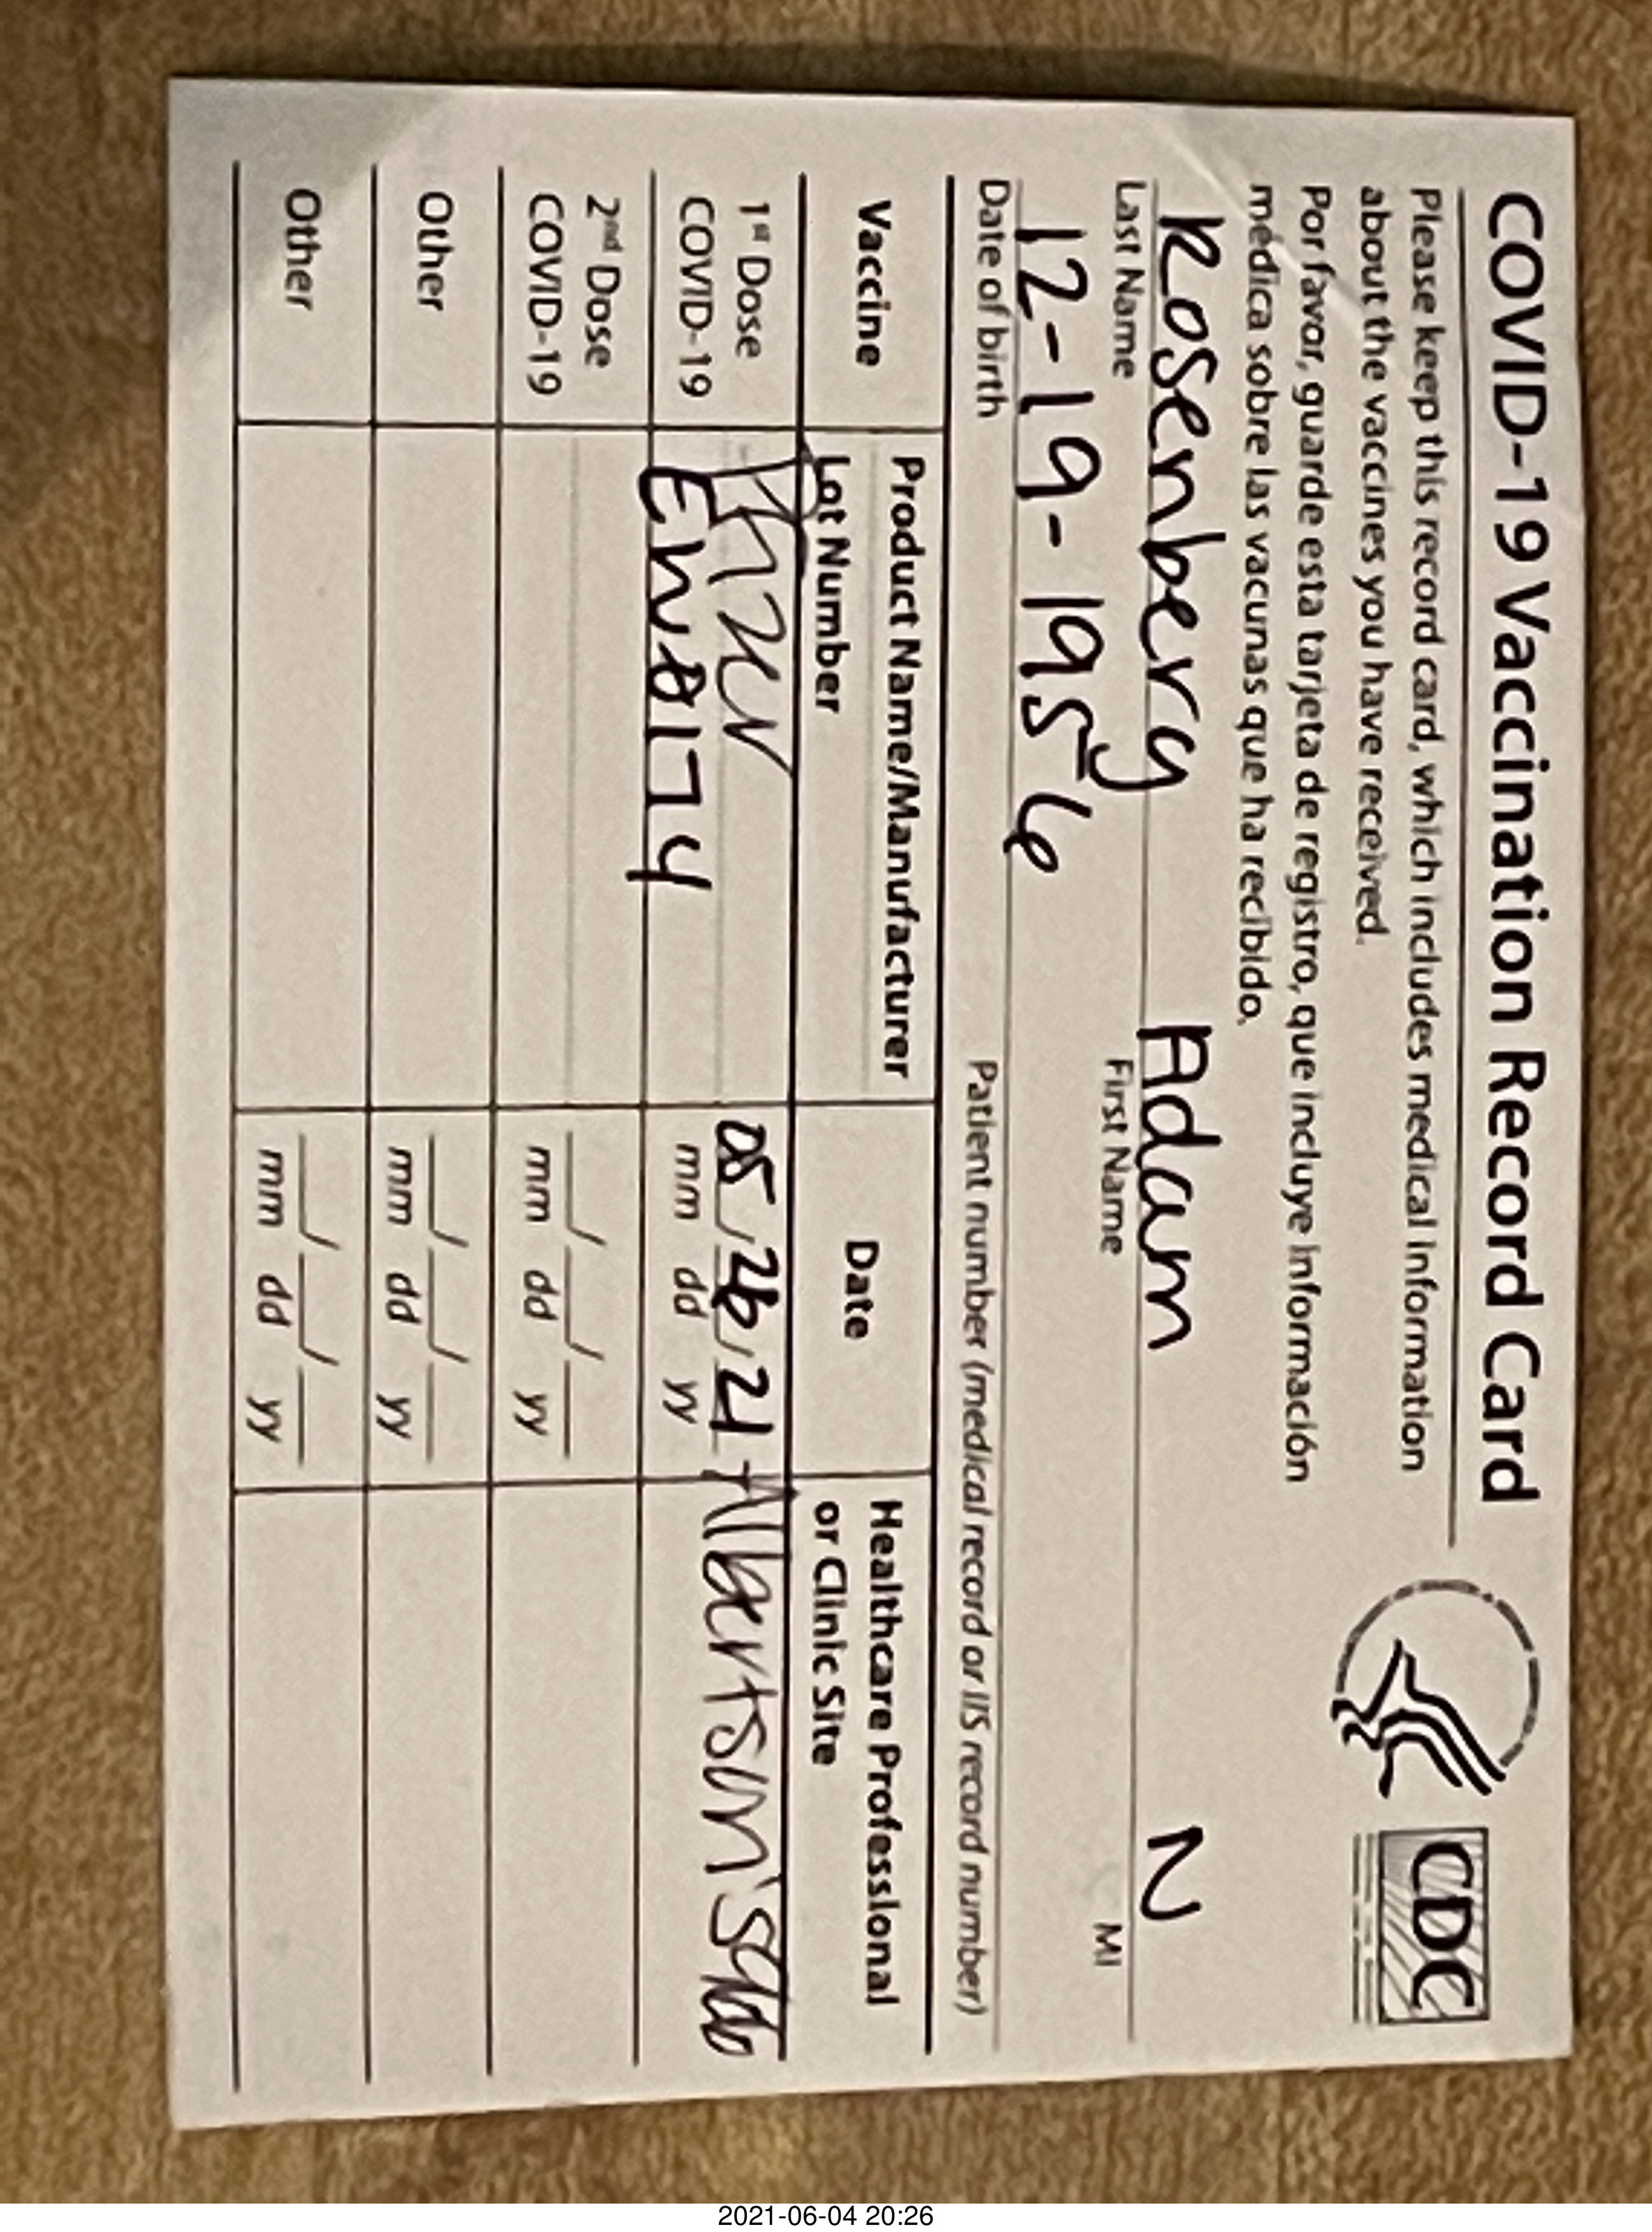 COVID-19 Vaccination Record Card
CDC
Please keep this record card, which includes medical information
about the vaccines you have received.
Por favor, guarde esta tarjeta de registro, que incluye información
médica sobre las vacunas que ha recibido.
Rosenberg Adam N
Last Name First Name MI
12-19-1956
Date of birth Patient number (medical record or IIS record number)
Vaccine Product Name/Manufacturer Date Healthcare Professional
Lot Number or Clinic Site
1st Dose 05/26/21 Albertson's
COVID-19 EW0174 mm dd yy
2nd Dose __/__/__
COVID-19 mm dd yy
Other __/__/__
mm dd yy
Other __/__/__
mm dd yy
2021-06-04 20:26